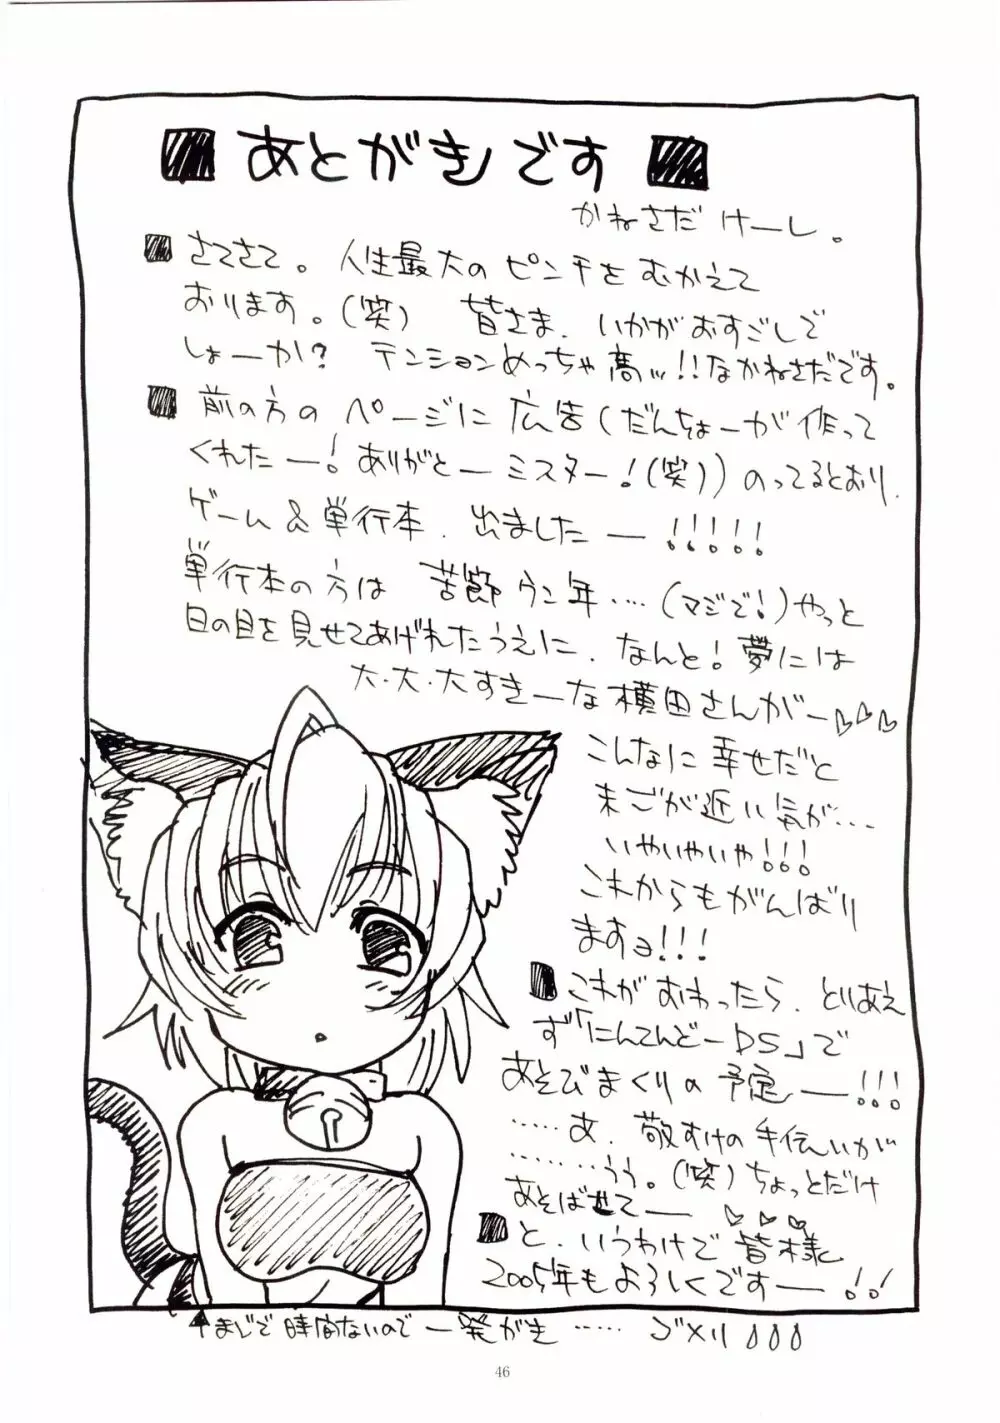 あとがきです
かねさだ けーし。
さてさて。人生最大のピンチをむかえて
おります。(笑) 皆さま、いかがおすごしで
しょーか? テンションめっちゃ高ッ!!なかねさだです。
前の方のページに広告(だんちょーが作って
くれたー!ありがとーミスター!(笑))のってるとおり、
ゲーム&単行本、出ましたー!!!!!
単行本の方は 苦節ウン年....(マジで!)やっと
日の目を見せてあげれたうえに、なんと!夢には
大・大・大すきーな横田さんがー♡♡♡
こんなに幸せだと
まごが近い気が....
いやいやいや!!!
これからもがんばり
ますョ!!!
これがおわったら、とりあえ
ず「にんてんどーDS」で
あそびまくりの予定ー!!!
......あ、敬すけの手伝いが
........うう。(笑)ちょっとだけ
あそばせてー♡♡♡
と、いうわけで皆様
2005年もよろしくですー!!
↑まじで時間ないので一発がき......ゴメリ
46